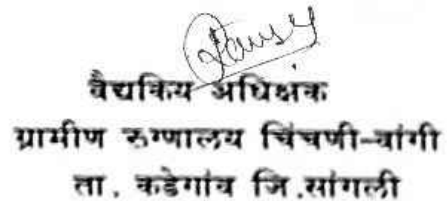 वैद्यकिय अधिक्षक
ग्रामीण रुग्णालय चिंचणी-वांगी
ता. कडेगांव जि.सांगली